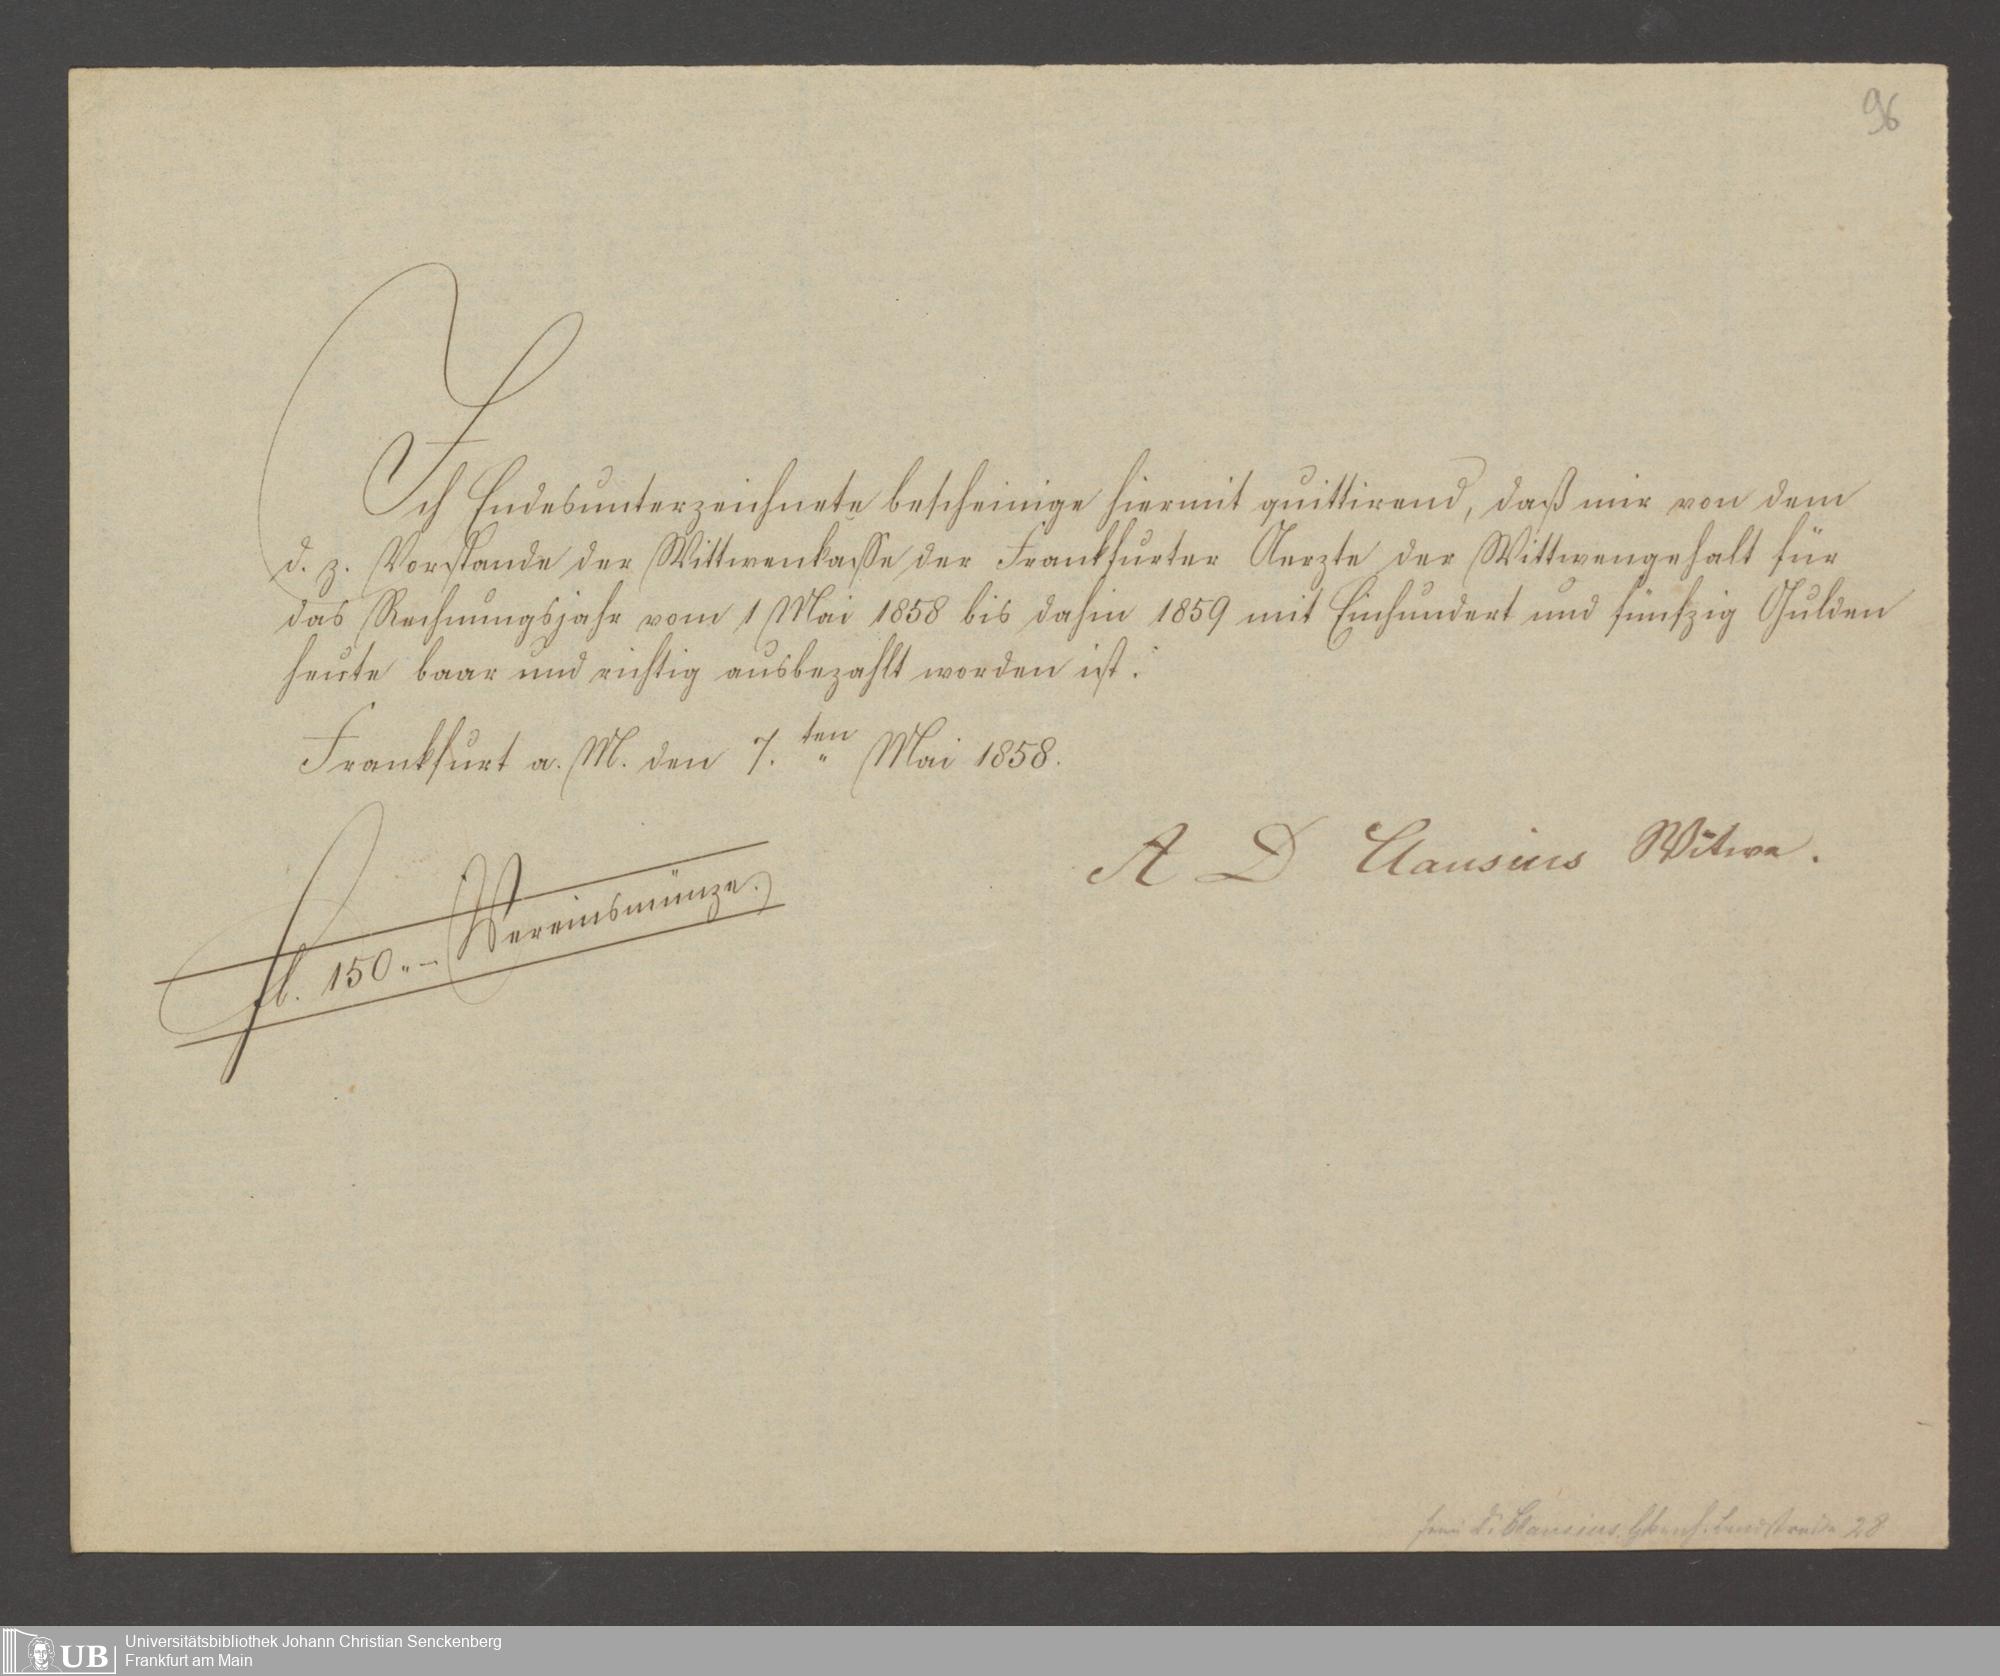 96
Ich Endesunterzeichnete bescheinige hiermit quittirend, daß mir von dem
d. z. Vorstande der Wittwenkasse der Frankfurter Aerzte der Wittwengehalt für
das Rechnungsjahr vom 1 Mai 1858 bis dahin 1859 mit Einhundert und fünfzig Gulden
heute baar und richtig ausbezahlt worden ist.
Frankfurt a. M. den 7.ten Mai 1858.
A D Clausius Witwe.
fl. 150.„— Vereinsmünze.
Clausius, Landstraße 28
UB
Universitätsbibliothek Johann Christian Senckenberg
Frankfurt am Main